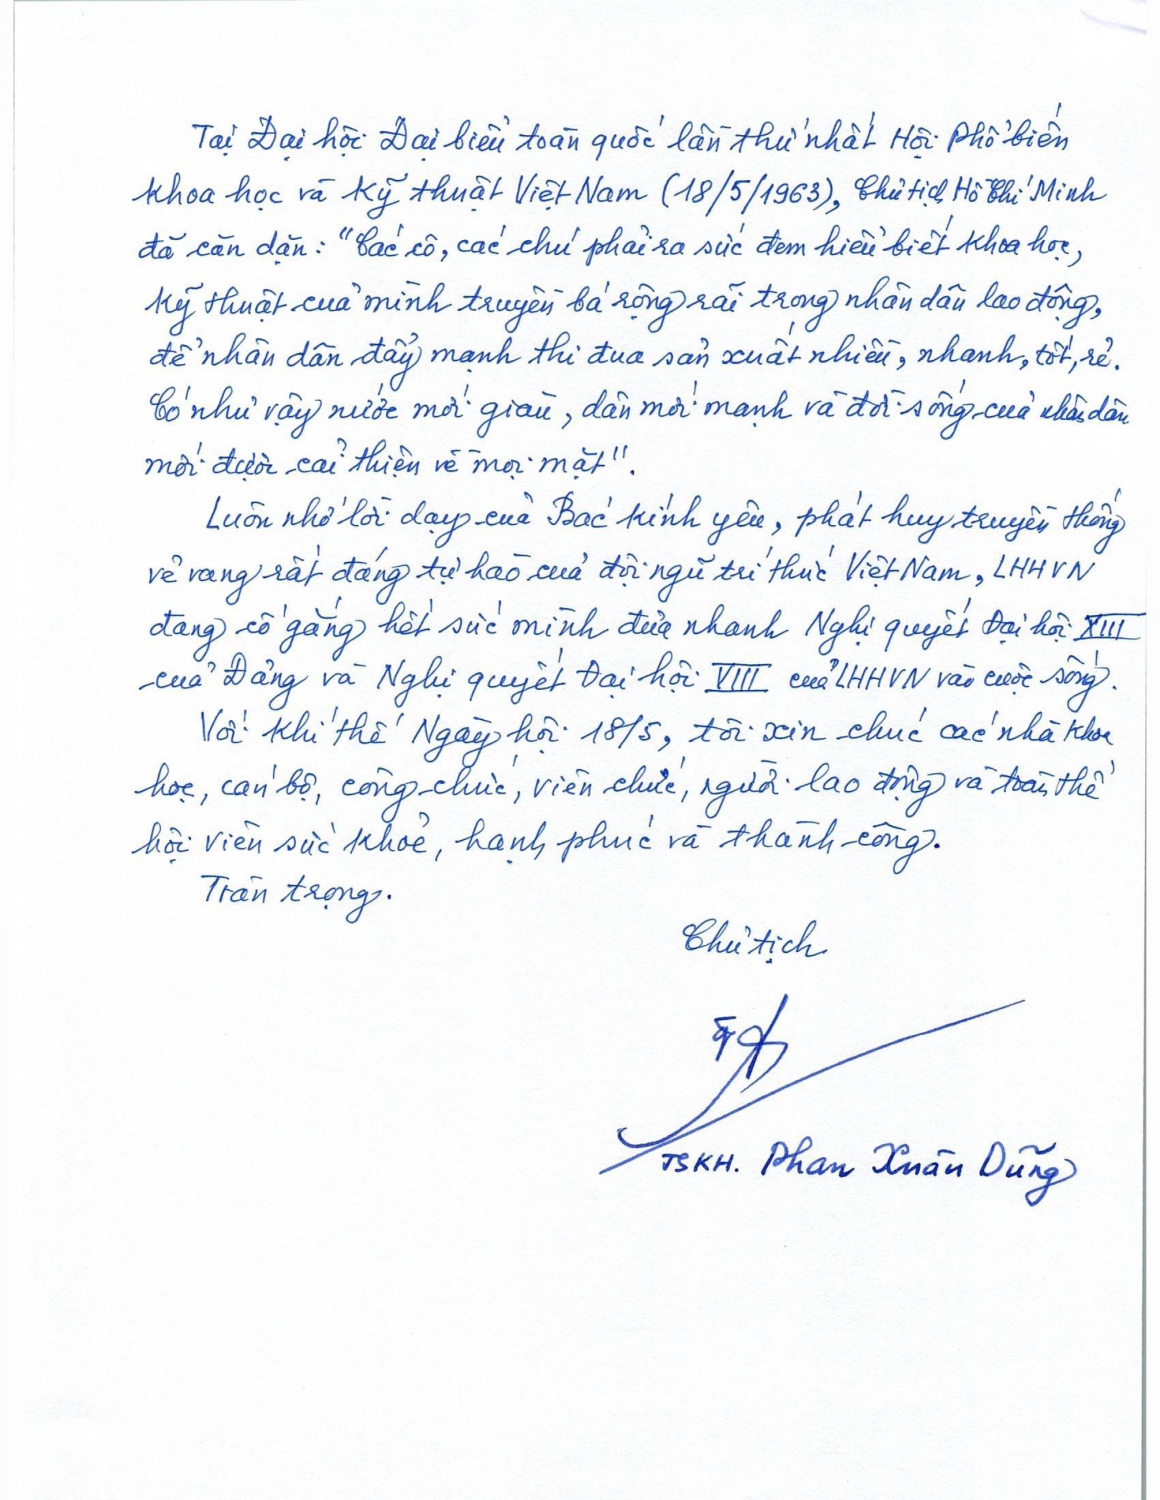 Tại Đại hội Đại biểu toàn quốc lần thứ nhất Hội Phổ biến
khoa học và Kỹ thuật Việt Nam (18/5/1963), Chủ tịch Hồ Chí Minh
đã căn dặn: "Các cô, các chú phải ra sức đem hiểu biết khoa học,
kỹ thuật của mình truyền bá rộng rãi trong nhân dân lao động,
để nhân dân đẩy mạnh thi đua sản xuất nhiều, nhanh, tốt, rẻ.
Có như vậy nước mới giàu, dân mới mạnh và đời sống của nhân dân
mới được cải thiện về mọi mặt".
Luôn nhớ lời dạy của Bác kính yêu, phát huy truyền thống
vẻ vang rất đáng tự hào của đội ngũ trí thức Việt Nam, LHHVN
đang cố gắng hết sức mình đưa nhanh Nghị quyết Đại hội XIII
của Đảng và Nghị quyết Đại hội VIII của LHHVN vào cuộc sống.
Với khí thế Ngày hội 18/5, tôi xin chúc các nhà khoa
học, cán bộ, công chức, viên chức, người lao động và toàn thể
hội viên sức khoẻ, hạnh phúc và thành công.
Trân trọng.
Chủ tịch
TSKH. Phan Xuân Dũng